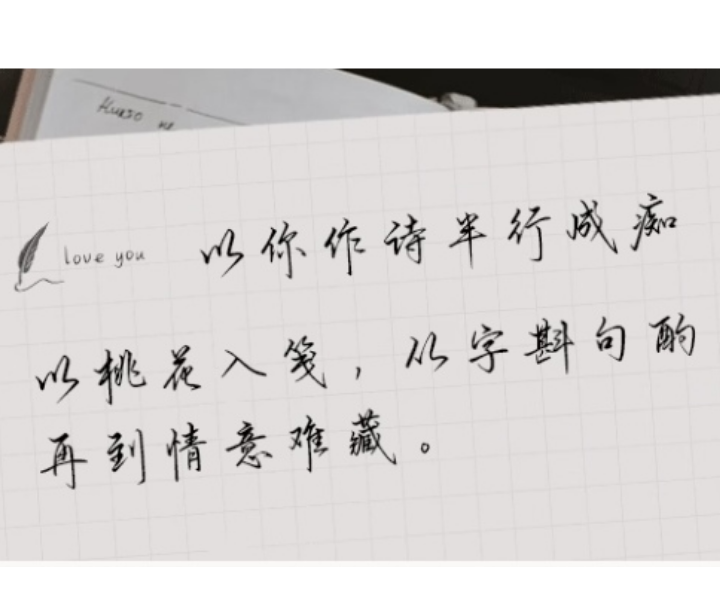 Kurso
love you 以你作诗半行成痴
以桃花入笺，从字斟句酌
再到情意难藏。